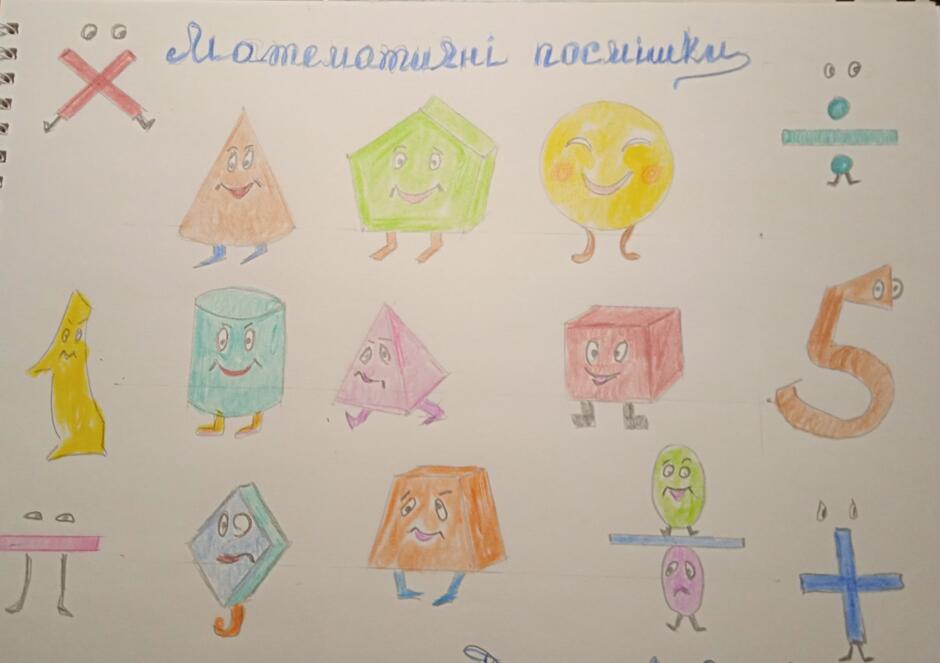 Математичні посмішки
1
5